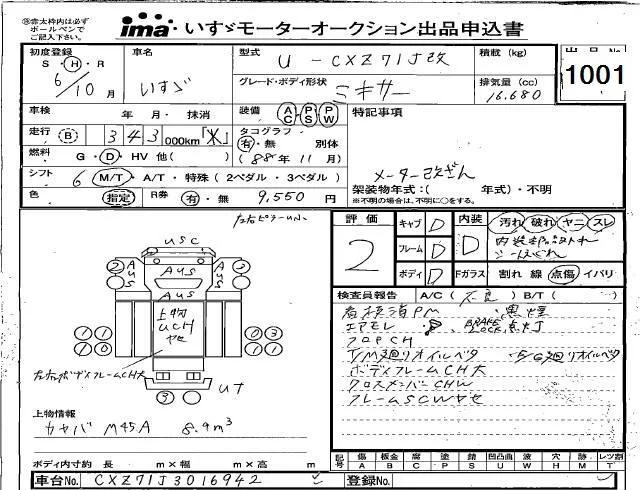 ※赤太枠内は必ず
ボールペンで
ご記入下さい。
ima・いすゞモーターオークション出品申込書
初度登録 車名 型式 U-CXZ71J改 積載(kg) 出品No.
S・H・R 6/10月 いすゞ グレード・ボディ形状 ミキサー 排気量(cc) 16.680 1001
車検 年 月・抹消 装備 AC PS PW 特記事項
走行 B 343 000km「メ」 タコグラフ 有・無 別体
(88年11月)
燃料 G・D・HV 他( )
メーター改ざん
シフト 6 M/T・A/T・特殊(2ペダル・3ペダル) 架装物年式:( 年式)・不明
※不明の場合は、不明に○をする。
色 指定 R券 有・無 9,550円
左右ピラーUハン
評価 2 キャブ D フレーム D ボディ D 内装 D Fガラス
汚れ 破れ ヤニ スレ
割れ 線 点傷 イバリ
USC
2 AUS AUS AUS
AUS
上物
UCH
ヤセ
1 1 1 0 0 3 1 1
左右ボディフレームCH大
UT
3
検査員報告 A/C(不良) B/T( )
・黒煙
エアモレ ・BRAKE LOCK点灯
フロアCH
T/M廻りオイルベタ ・E/G廻りオイルベタ
ボディフレームCH大
クロスメンバーCHW
フレームSCWヤセ
上物情報
カヤバ M45A 8.9m³
ボディ内寸約 長 m×幅 m×高 m
記号 傷 A 板金 B 腐 C 塗 P 錆 S 凹凸曲 U 波 W 穴 H 跡 M レツ割 T
車台No. CXZ71J3016942
登録No.